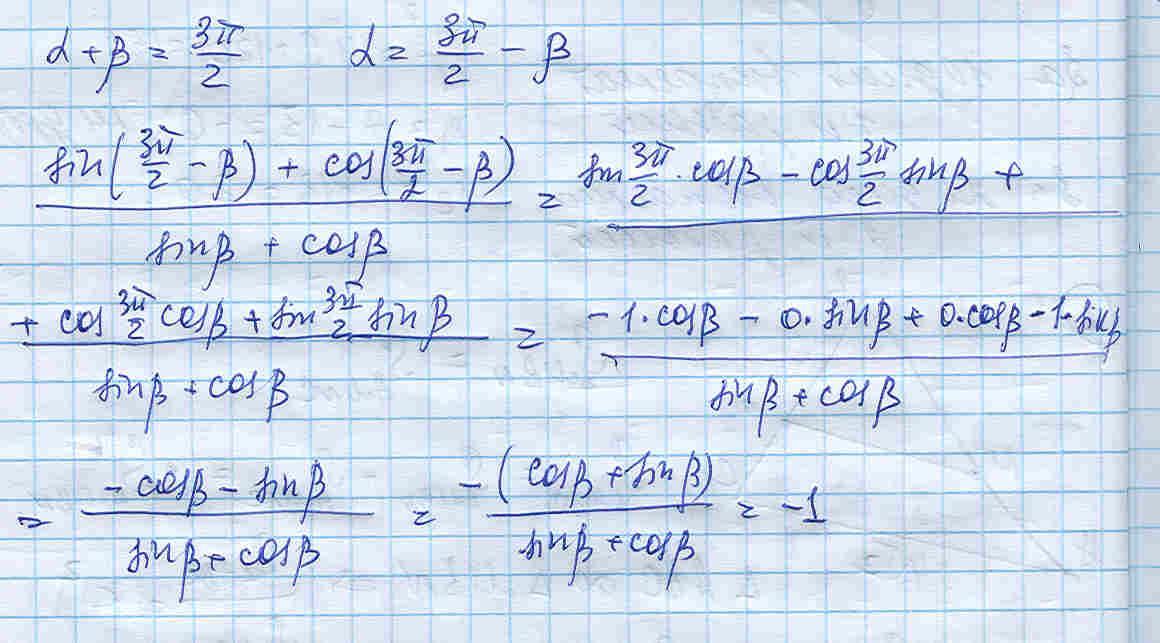 α + β = 3π/2 α = 3π/2 − β
(sin(3π/2 − β) + cos(3π/2 − β))/(sinβ + cosβ) = sin 3π/2 · cosβ − cos 3π/2 sinβ +
(+ cos 3π/2 cosβ + sin 3π/2 sinβ)/(sinβ + cosβ) = (−1·cosβ − 0·sinβ + 0·cosβ − 1·sinβ)/(sinβ + cosβ)
= (−cosβ − sinβ)/(sinβ + cosβ) = −(cosβ + sinβ)/(sinβ + cosβ) = −1